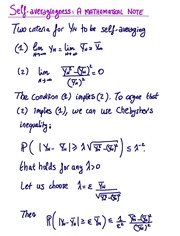 Self-averagingness: A mathematical note
Two criteria for Yₙ to be self-averaging
(1) lim Yₙ = lim Ȳₙ = Ȳ∞
n→∞ n→∞
(2) lim (Ȳₙ² - (Ȳₙ)²)/(Ȳₙ)² = 0
n→∞
The condition (2) implies (1). To agree that
(2) implies (1), we can use Chebyshev's
inequality:
P( |Yₙ - Ȳₙ| ≥ λ √(Ȳₙ² - (Ȳₙ)²) ) ≤ λ⁻²
that holds for any λ>0
Let us choose λ = ε Ȳₙ/√(Ȳₙ² - (Ȳₙ)²)
Then P( |Yₙ - Ȳₙ| ≥ ε Ȳₙ ) ≤ 1/ε² (Ȳₙ² - (Ȳₙ)²)/(Ȳₙ)²